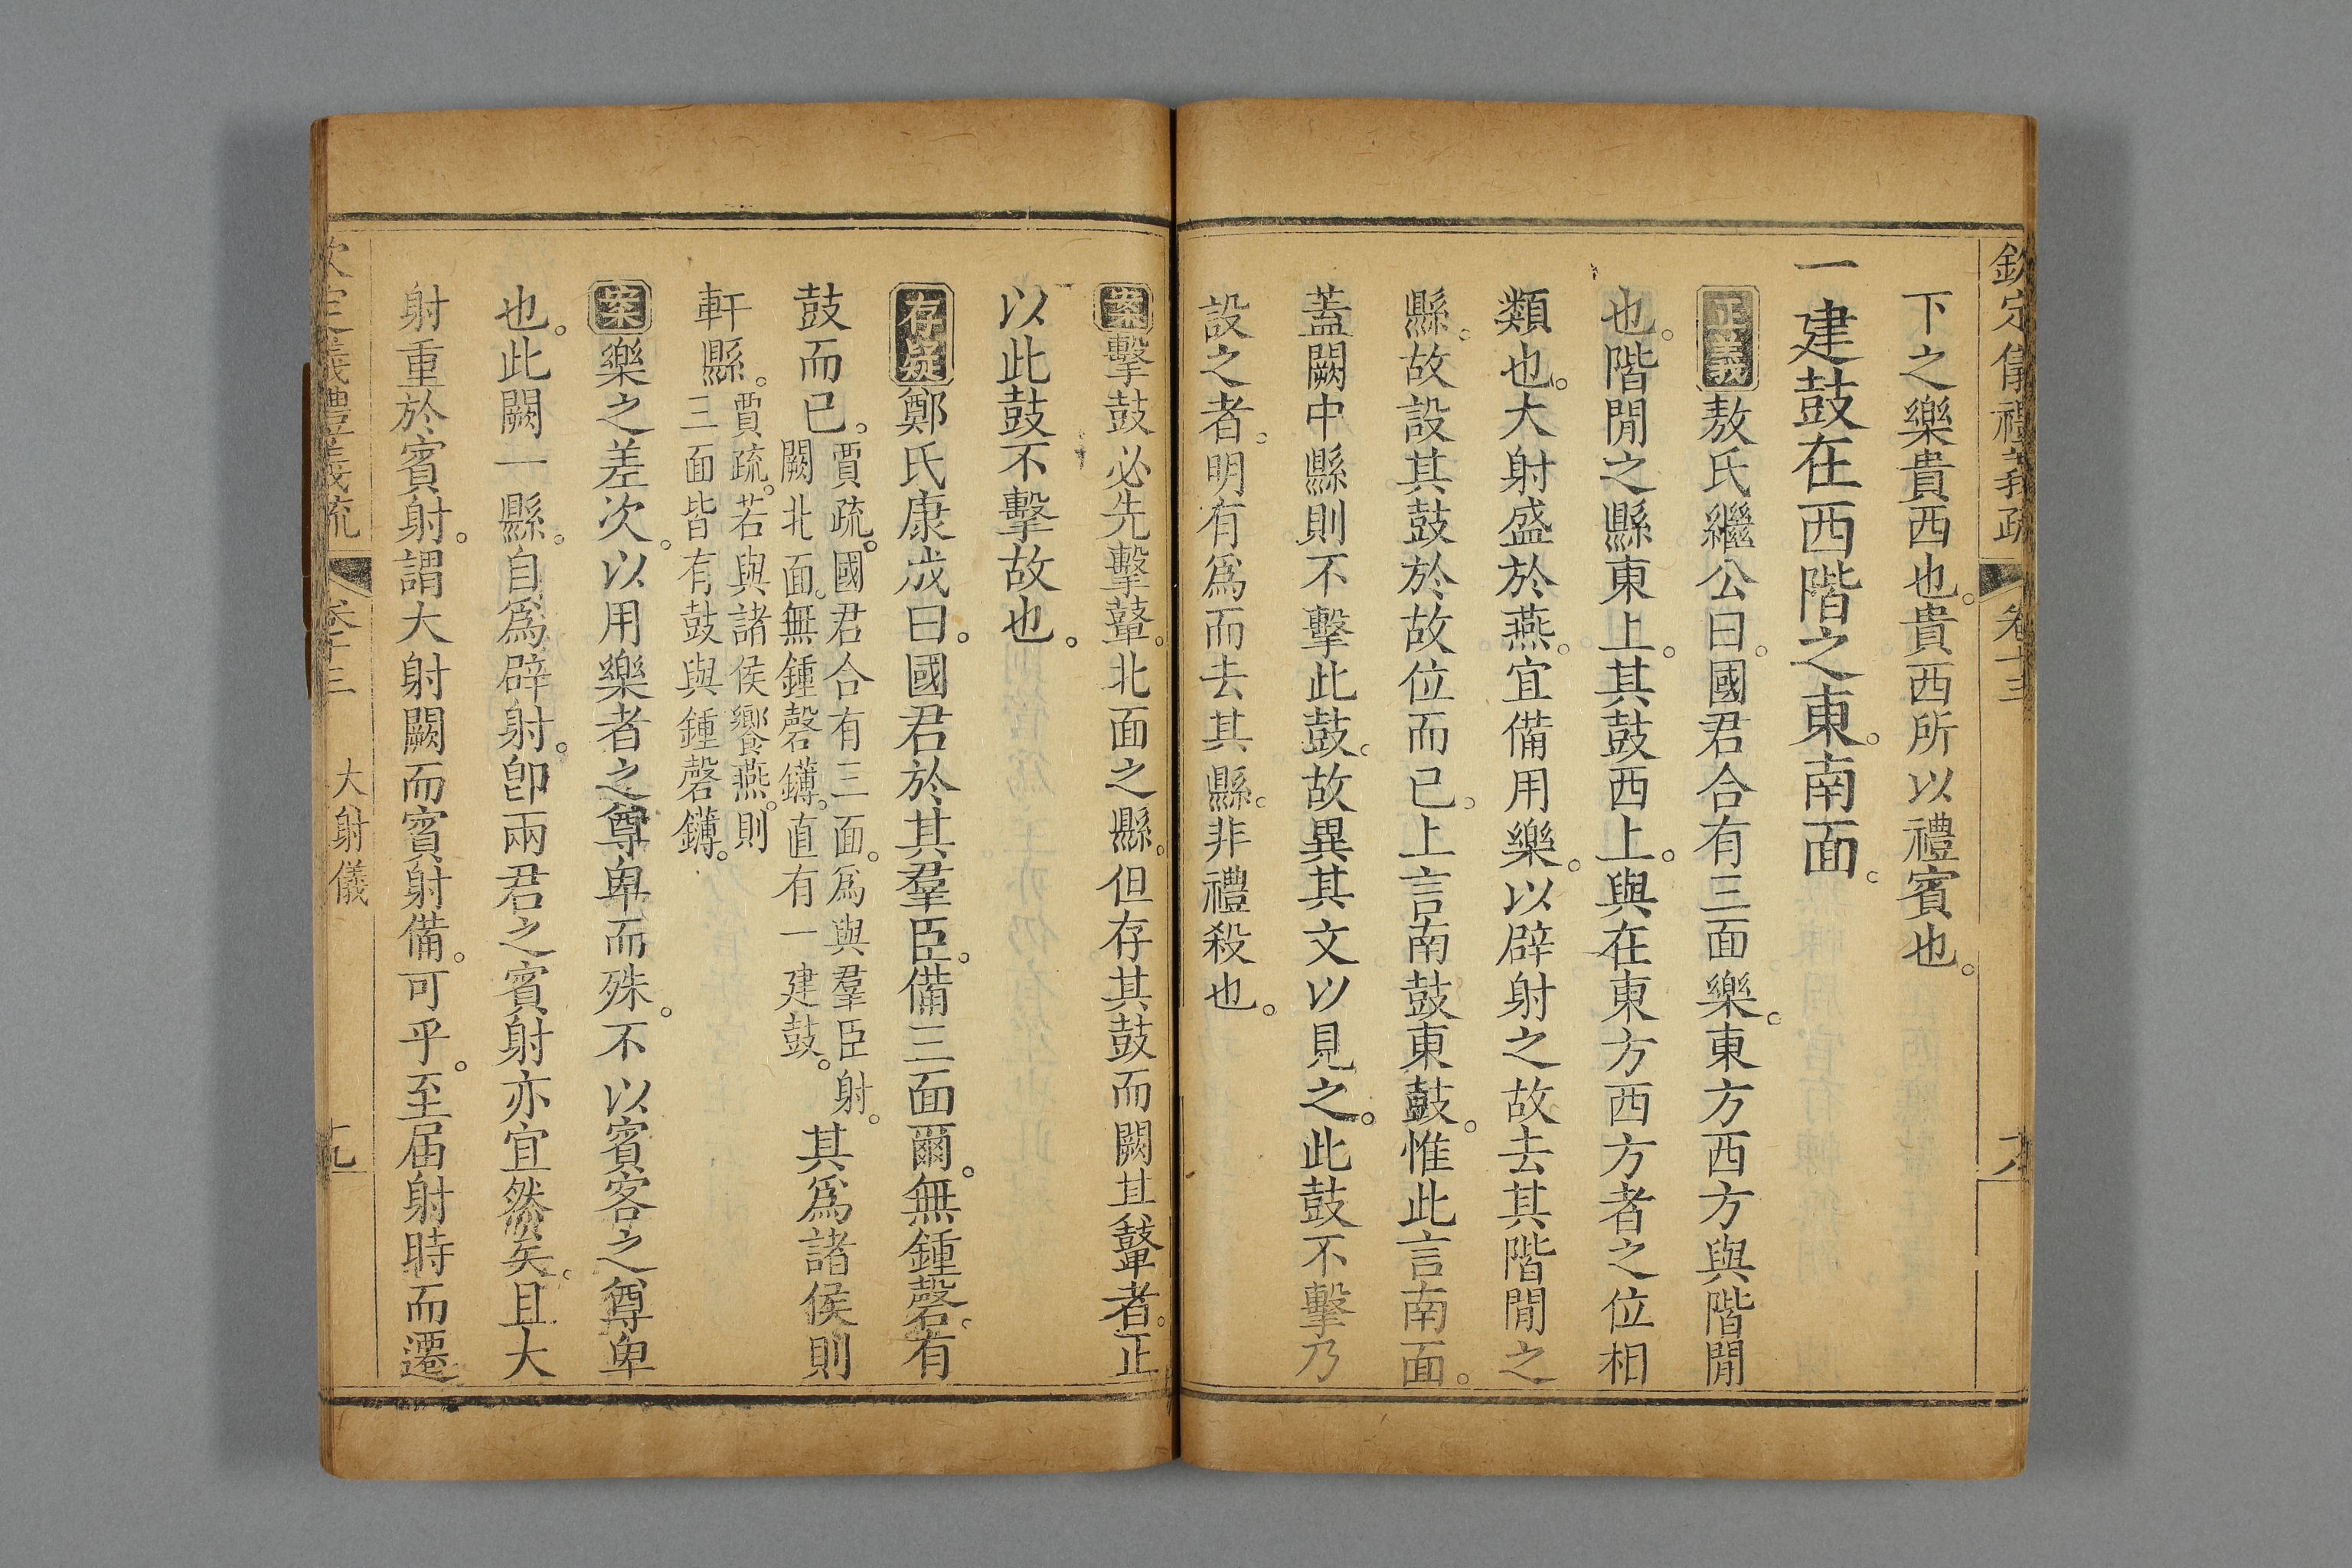 欽定儀禮義疏 卷十三
下之樂貴西也。貴西所以禮賓也。
一建鼓在西階之東。南面。
正義敖氏繼公曰。國君合有三面樂。東方西方與階閒
也。階閒之縣東上。其鼓西上。與在東方西方者之位相
類也。大射盛於燕。宜備用樂。以辟射之故去其階閒之
縣。故設其鼓於故位而已。上言南鼓東鼓。惟此言南面。
蓋闕中縣則不擊此鼓。故異其文以見之。此鼓不擊乃
設之者。明有為而去其縣。非禮殺也。
案擊鼓必先擊鼙。北面之縣。但存其鼓而闕其鼙者。正
以此鼓不擊故也。
存疑鄭氏康成曰。國君於其羣臣。備三面爾。無鍾磬。有
鼓而已。賈疏。國君合有三面。為與羣臣射。闕北面。無鍾磬鑮。直有一建鼓。其為諸侯則
軒縣。賈疏。若與諸侯饗燕。則三面皆有鼓與鍾磬鑮。
案樂之差次。以用樂者之尊卑而殊。不以賓客之尊卑
也。此闕一縣。自為辟射。卽兩君之賓射亦宜然矣。且大
射重於賓射。謂大射闕而賓射備。可乎。至届射時而遷
定儀禮義疏 卷十三 大射儀 十九